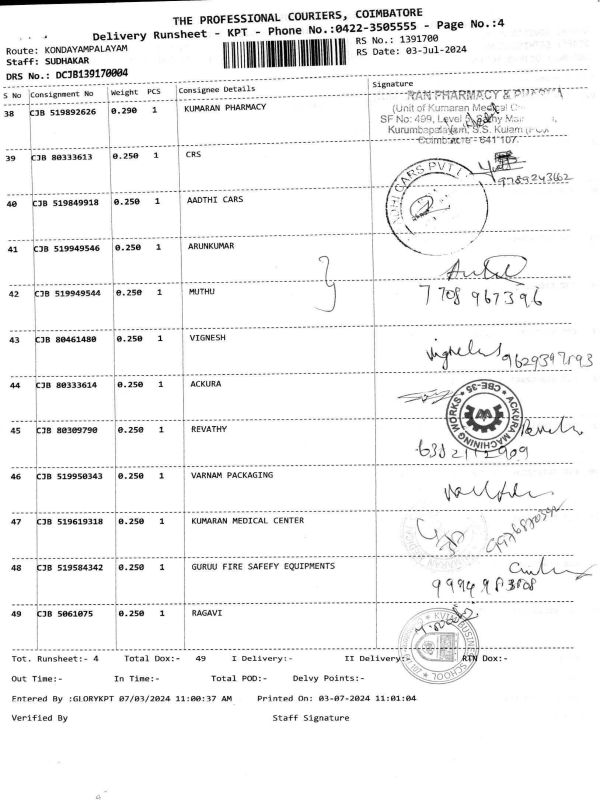 THE PROFESSIONAL COURIERS, COIMBATORE
Delivery Runsheet - KPT - Phone No.:0422-3505555 - Page No.:4
Route: KONDAYAMPALAYAM
RS No.: 1391700
Staff: SUDHAKAR
RS Date: 03-Jul-2024
DRS No.: DCJB139170004
S No Consignment No Weight PCS Consignee Details Signature
38 CJB 519892626 0.290 1 KUMARAN PHARMACY
RAN PHARMACY &
(Unit of Kumaran Medical
SF No: 499, Level
Kurumbapalayam, S.S. Kulam
Coimbatore - 641 107.
39 CJB 80333613 0.250 1 CRS
9789243662
40 CJB 519849918 0.250 1 AADTHI CARS
DHI CARS PVT L
41 CJB 519949546 0.250 1 ARUNKUMAR
42 CJB 519949544 0.250 1 MUTHU
7708 967396
43 CJB 80461480 0.250 1 VIGNESH
Vignesh
44 CJB 80333614 0.250 1 ACKURA
ACKURA MACHINING WORKS CBE-35
45 CJB 80309790 0.250 1 REVATHY
6382112909
46 CJB 519950343 0.250 1 VARNAM PACKAGING
47 CJB 519619318 0.250 1 KUMARAN MEDICAL CENTER
48 CJB 519584342 0.250 1 GURUU FIRE SAFEFY EQUIPMENTS
49 CJB 5061075 0.250 1 RAGAVI
BUSINESS SCHOOL
Tot. Runsheet:- 4 Total Dox:- 49 I Delivery:- II Delivery:- RTN Dox:-
Out Time:- In Time:- Total POD:- Delvy Points:-
Entered By :GLORYKPT 07/03/2024 11:00:37 AM Printed On: 03-07-2024 11:01:04
Verified By Staff Signature